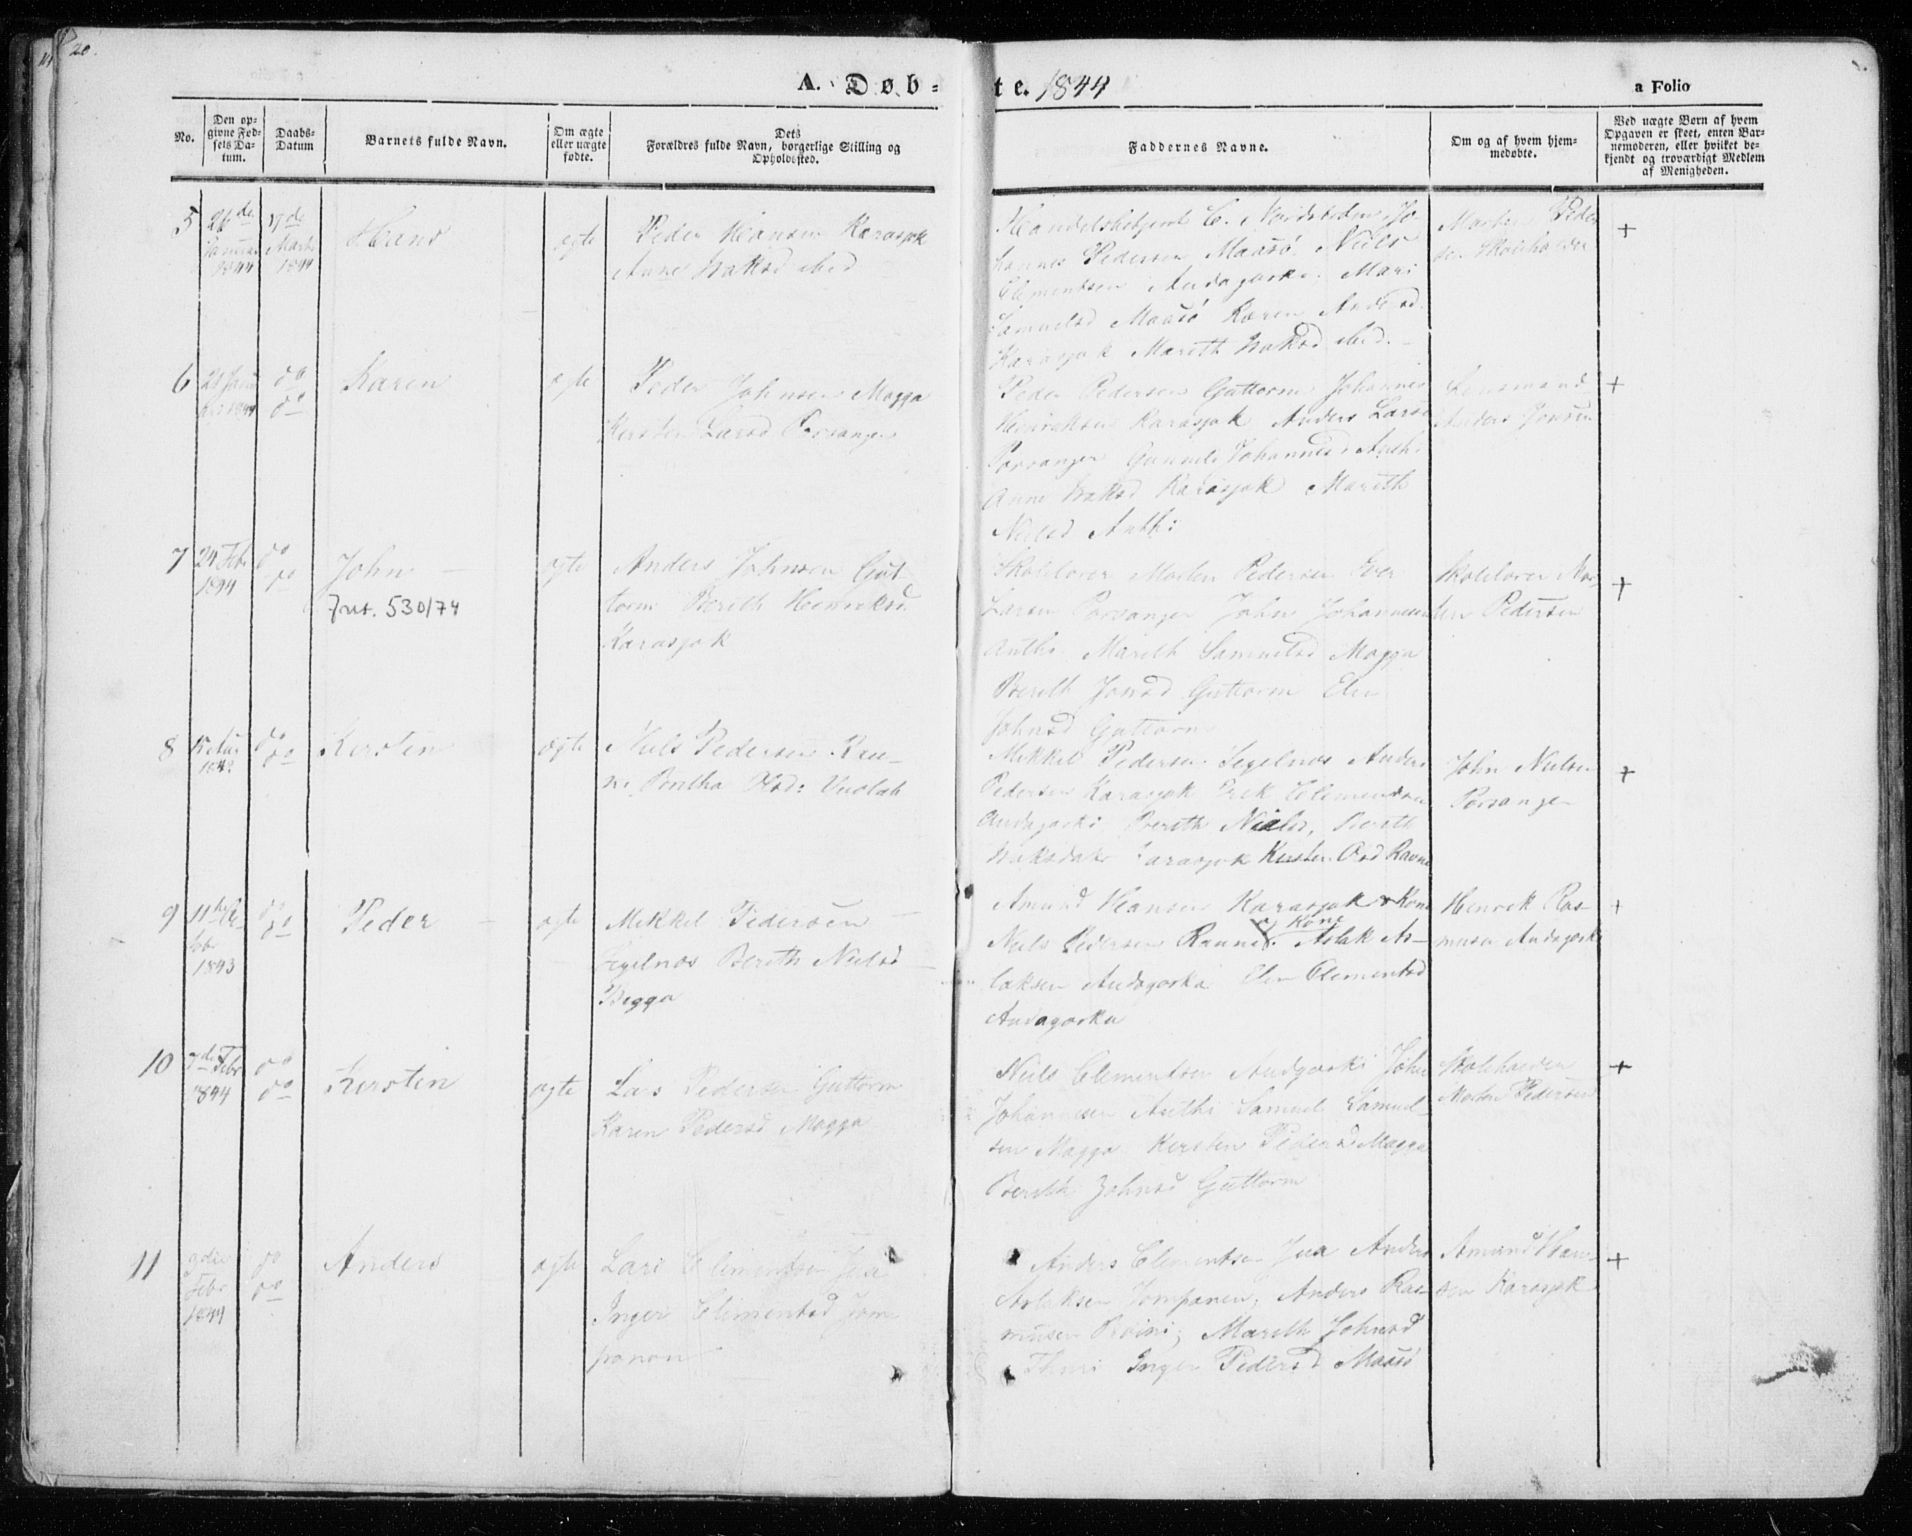 20.
A. Døb=te. 1844
a Folio
No.
Den op=
givne Fød=
sels Da=
tum.
Daabs=
Datum
Barnets fulde Navn.
Om ægte
eller uægte
fødte.
Dets
Forældres fulde Navn, borgerlige Stilling og
Opholdssted.
Faddernes Navne.
Om og af hvem hjem=
medøbte.
Ved uægte Børn af hvem
Opgaven er skeet, enten Bar=
nemoderen, eller hvilket be=
kjendt og troværdigt Medlem
af Menigheden.
5
26de
Januar
1844
17de
Marts
1844
Hans
ægte
Peder Hansen Karasjok
Anne Isaksd ibid
Johannes Pedersen Maasø Niels
Clementsen Andagaska Mari
Samuelsd Maasø Karen Andersd
Karasjok Marith Isaksd ibid.
Morten Peder
sen Skoleholder
+
6
do
do
Karen
ægte
Peder Johnsen Magga
Kersten Larsd Porsanger
Peder Pedersen Guttorm Johannes
Henriksen Karasjok Anders Larse
Porsanger Gunnild Johannesd Authi
Anne Isaksd Karasjok Marith
Nielsd Authi
Lensmand
Anders Jonsen
+
7
24 Febr
1844
do
do
John
Jnt. 530/74
ægte
Anders Johnsen Gut
torm Berith Henriksd
Karasjok
Skolelærer Morten Pedersen Iver
Larsen Porsanger John Johannesen
Authi Marith Samuelsd Magga
Berith Jonsd Guttorm Elen
Johnsd Guttorm
Skolelærer Mor
ten Pedersen
+
8
do
do
Kersten
ægte
Niels Pedersen Rau
ne Beritha Olsd: Vuolab
Mikkel Pedersen Segelnæs Anders
Pedersen Karasjok Erik Clementsen
Andagaski Berith Nielsd, Berith
Isaksdatr Karasjok Kersten Olsd Ravne
John Nielsen
Porsanger
+
9
1843
do
do
Peder
ægte
Mikkel Pedersen
Segelnæs Berith Nielsd
Bigga
Amund Hansen Karasjok & Kone
Niels Pedersen Raune & Kone Aslak As-
laksen Andagaska Elen Clementsd
Andagaska
Henrik Ras-
musen Andagaski
+
10
7de Febr
1844
do
do
Kersten
ægte
Lars Pedersen Guttorm
Karen Pedersd Magga
Niels Clementsen Andgaski John
Johannesen Authi Samuel Samuel
sen Magga Kersten Pedersd Magga
Berith Johnsd Guttorm
Skoleholder
Morten Pedersen
+
11
9de
Febr
1844
do
do
Anders
ægte
Lars Clementsen Jua
Inger Clementsd Jom
panen
Anders Clementsen Jua Anders
Aslaksen Jompanen, Anders Ras-
musen Boini; Marith Johnsd
Thuri Inger Pedersd Maasø
Amund Han-
sen Karasjok
+